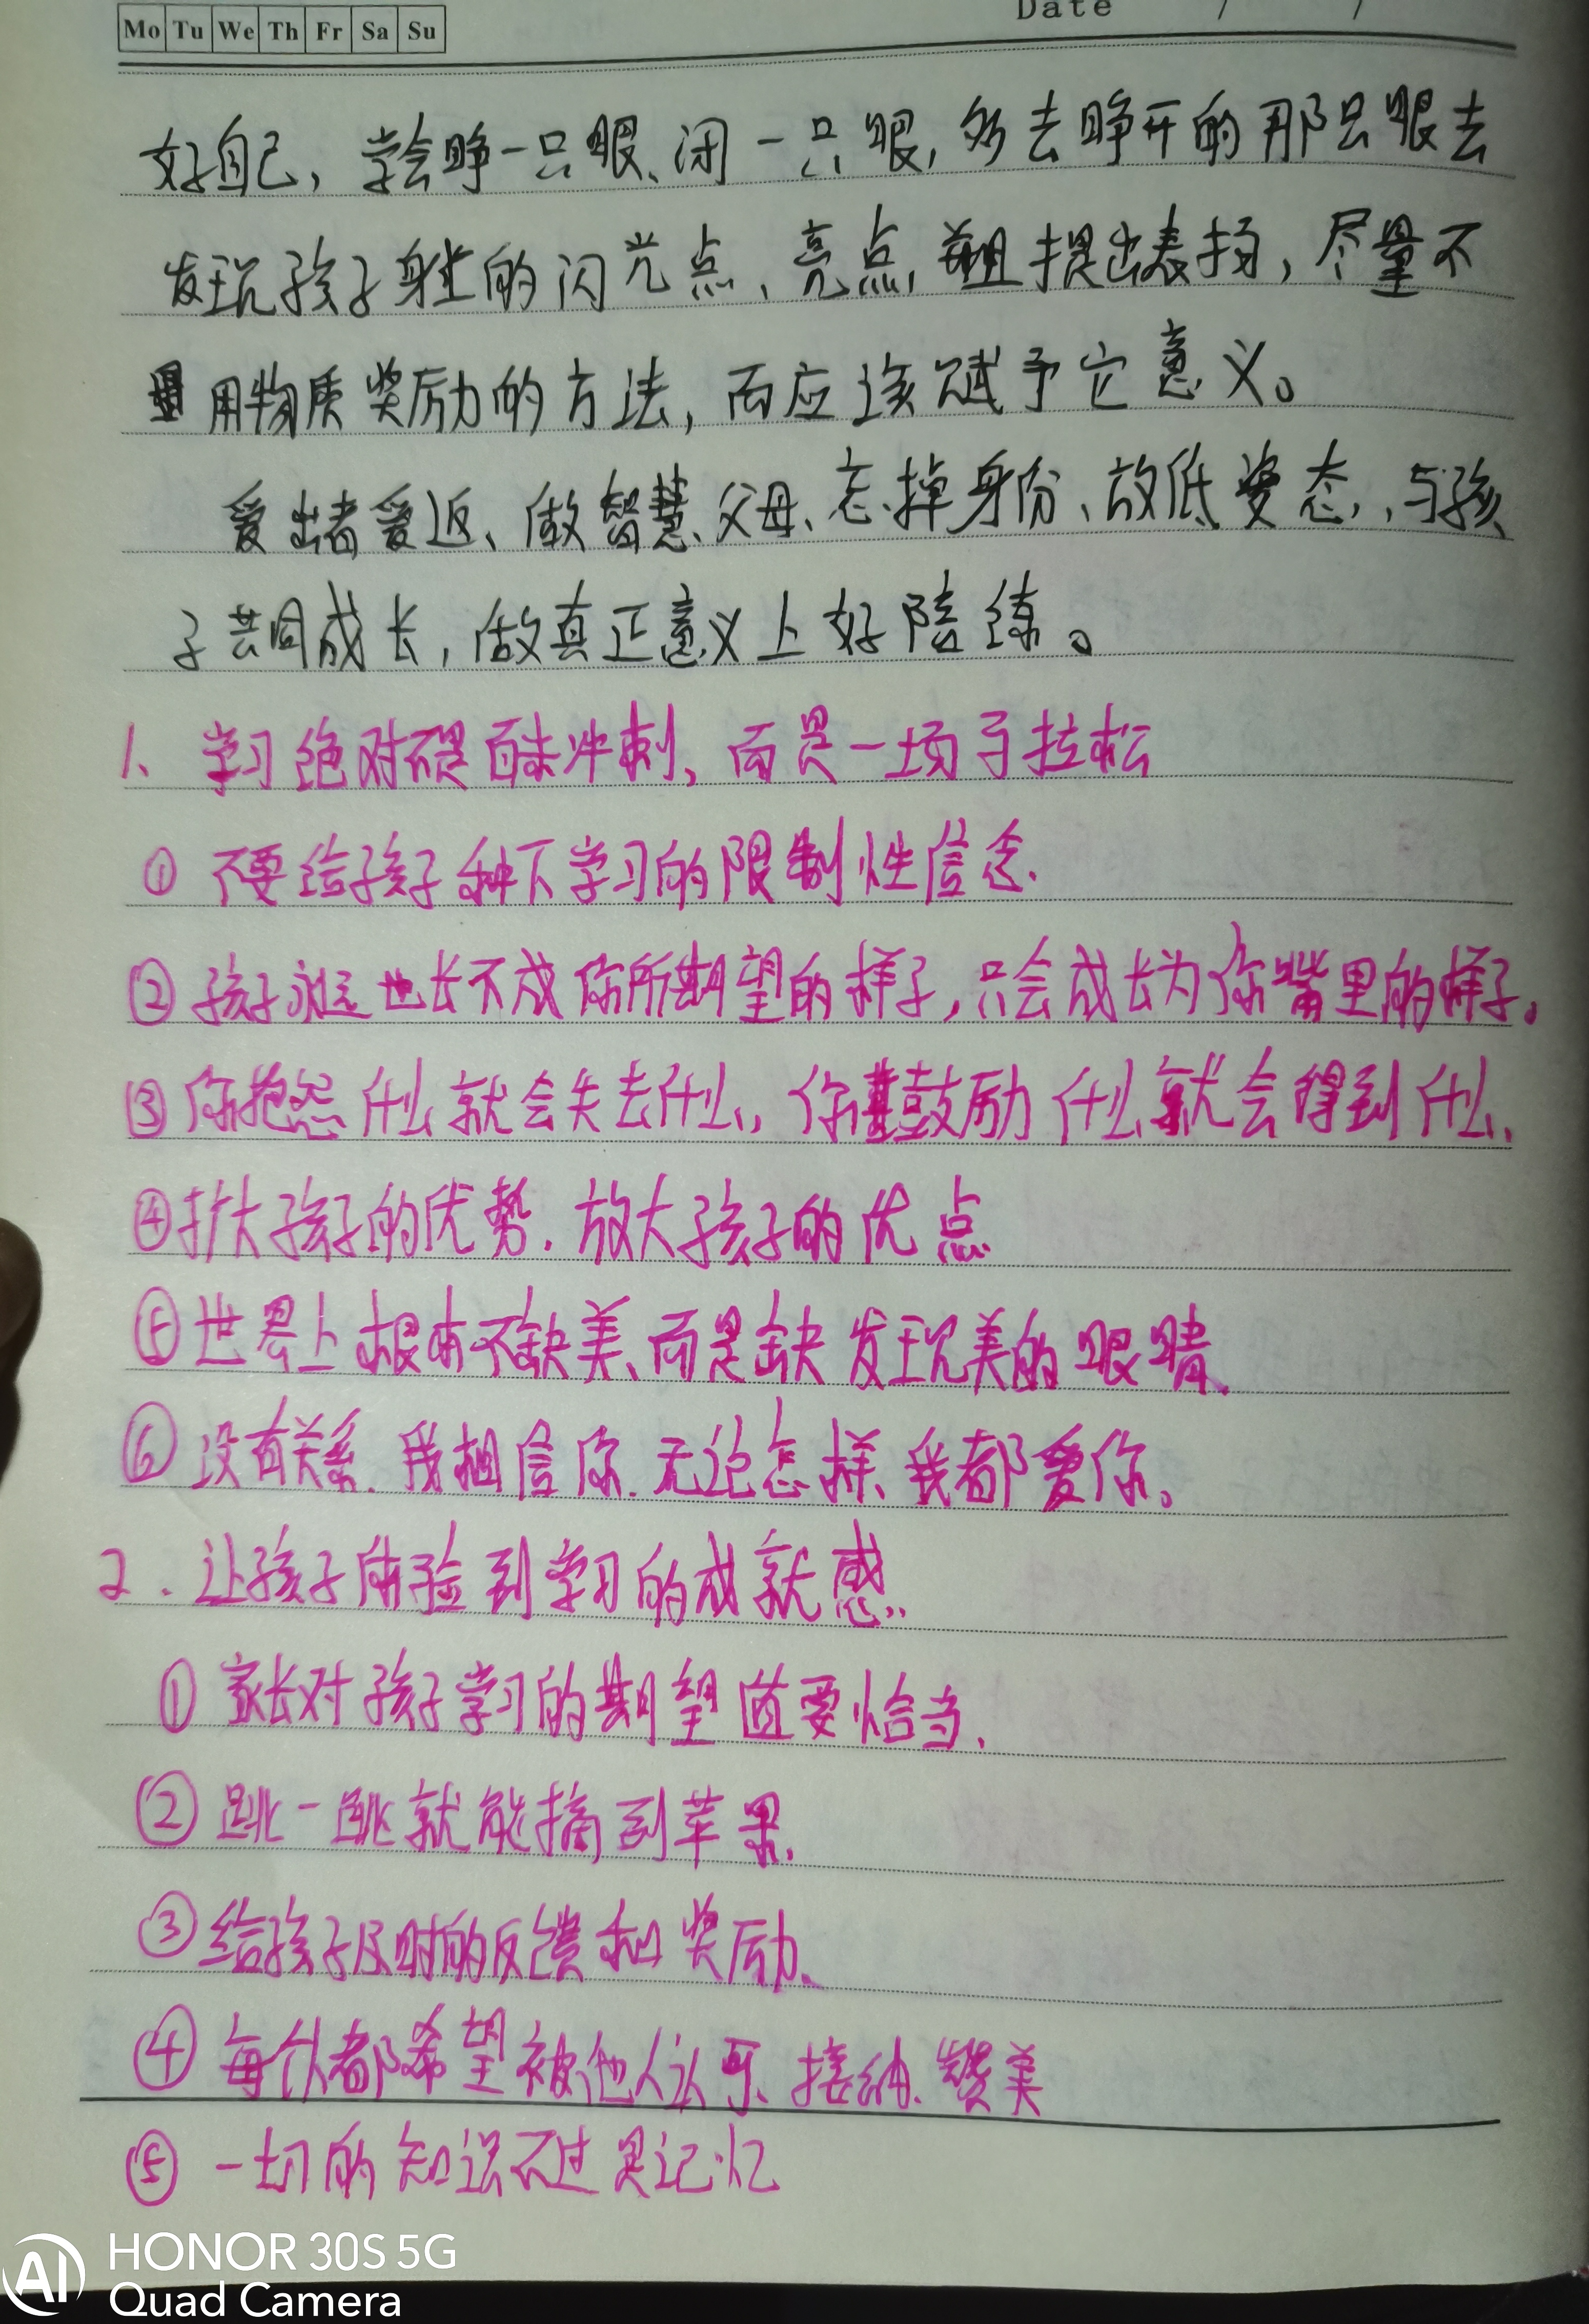 Mo Tu We Th Fr Sa Su
Date / /
好自己，学会睁一只眼、闭一只眼，多去睁开的那只眼去
发现孩子身上的闪光点、亮点，并且提出表扬，尽量不
用物质奖励的方法，而应该赋予它意义。
爱出者爱返、做智慧父母、忘掉身份、放低姿态，与孩
子共同成长，做真正意义上好陪练。
1、学习绝对不是百米冲刺，而是一场马拉松
① 不要给孩子种下学习的限制性信念.
② 孩子永远也长不成你所期望的样子，只会成长为你嘴里的样子。
③ 你抱怨什么就会失去什么，你鼓励什么就会得到什么、
④ 扩大孩子的优势.放大孩子的优点
⑤ 世界上根本不缺美、而是缺发现美的眼睛、
⑥ 没有关系.我相信你.无论怎样、我都爱你。
2.让孩子体验到学习的成就感..
① 家长对孩子学习的期望值要恰当、
② 跳一跳就能摘到苹果.
③ 给孩子及时的反馈和奖励、
④ 每个人都希望被他人认可、接纳、赞美
⑤ 一切的知识不过是记忆
HONOR 30S 5G
AI Quad Camera